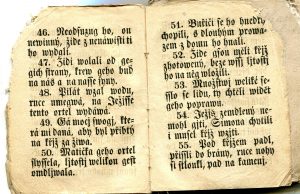 46. Neodsuzug ho, on
newinný, židé z nenáwisti ti
ho wydali.
47. Židi wolali od ge-
gich strany, krew geho bud
na nás a na nasse syny.
48. Pilát wzal wodu,
ruce umegwá, na Ježísse
tento ortel wydáwá.
49. Gá mocý swogi, kte-
rá mi daná, aby byl přibitý
na kříž za žiwa.
50. Matička geho ortel
slyssela, lítostí welikou gest
omdlíwala.
51. Butiči se ho hnedky
chopili, s dlouhým prowa-
zem z domu ho hnali.
52. Židé gsou měli kříž
zhotowený, beze wssí lítosti
ho na něg wložili.
53. Množstwj weliké se-
sslo se lidu, ty chtěli widět
geho poprawu.
54. Ježjš zemdlený ne-
mohl gjti, Simona chytili
i musel kříž wzíti.
55. Pod křížem padl,
přissli do brány, ruce nohy
si stloukl, pad na kamenj.